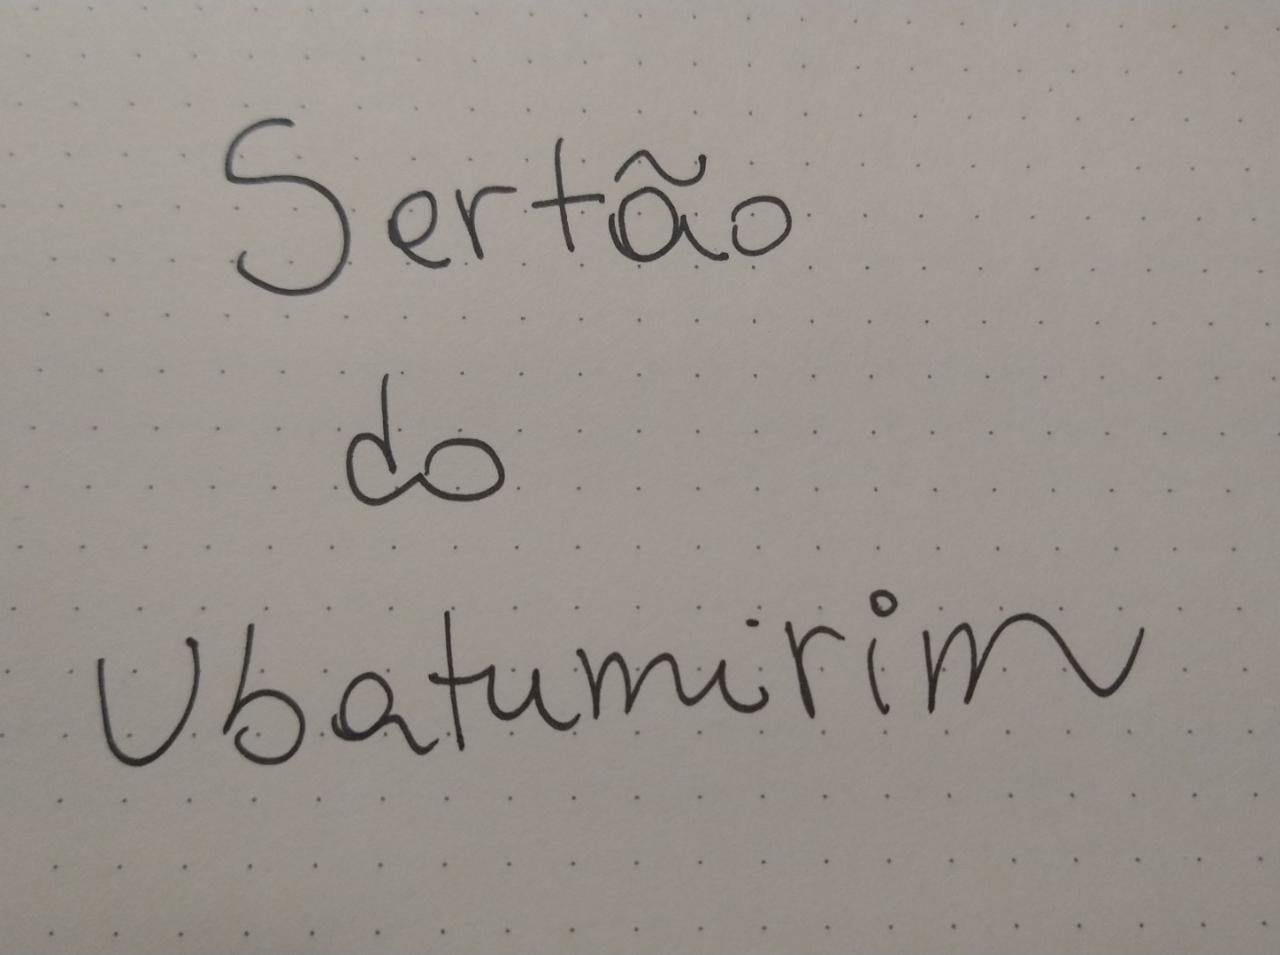 Sertão
do
Ubatumirim